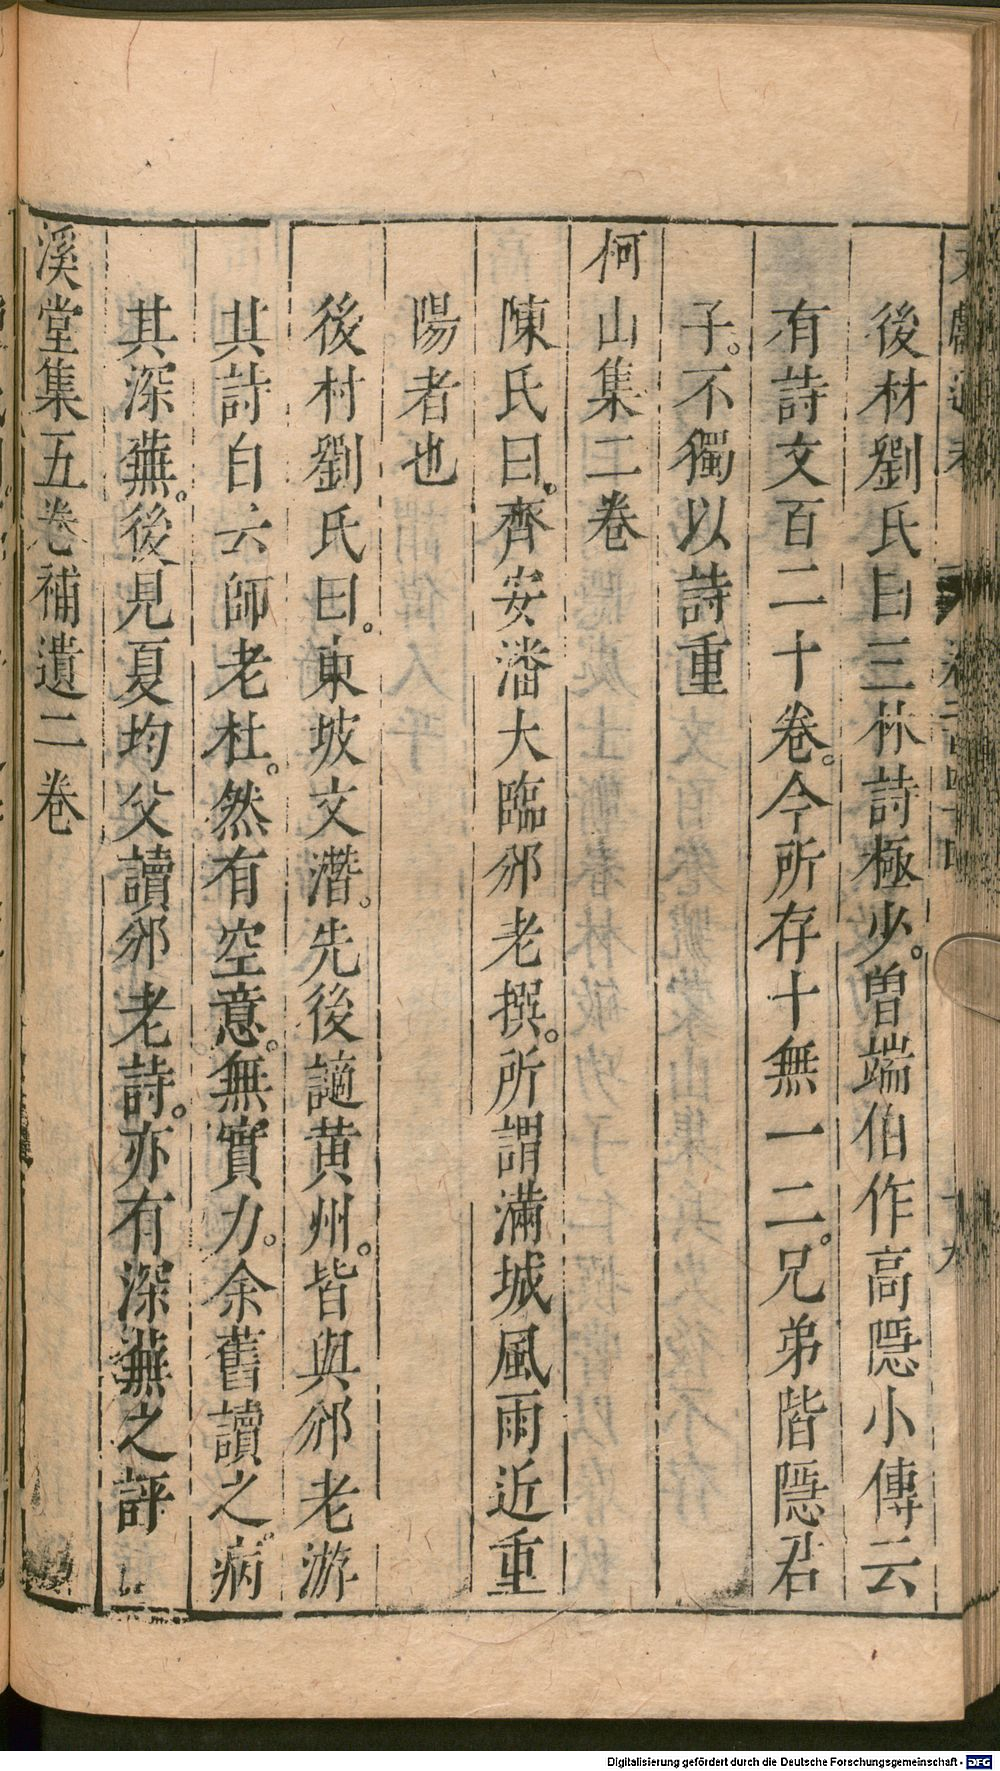 後材劉氏曰三林詩極少曾端伯作高隱小傳云
有詩文百二十卷今所存十無一二兄弟皆隱君
子不獨以詩重
何山集二卷
陳氏曰齊安潘大臨邠老撰所謂滿城風雨近重
陽者也
後村劉氏曰東坡文潛先後謫黄州皆與邠老游
其詩自云師老杜然有空意無實力余舊讀之病
其深蕪後見夏均父讀邠老詩亦有深蕪之評
溪堂集五卷補遺二卷
Digitalisierung gefördert durch die Deutsche Forschungsgemeinschaft - DFG